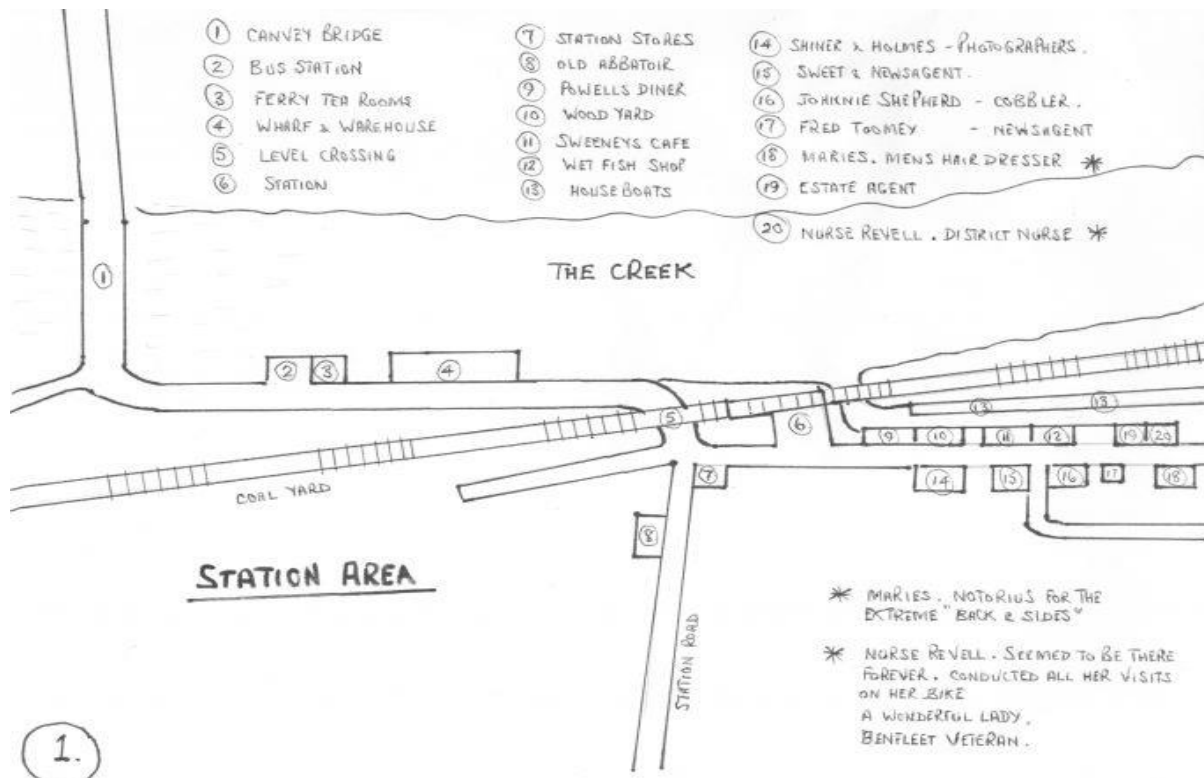 1 CANVEY BRIDGE
2 BUS STATION
3 FERRY TEA ROOMS
4 WHARF & WAREHOUSE
5 LEVEL CROSSING
6 STATION
7 STATION STORES
8 OLD ABBATOIR
9 POWELLS DINER
10 WOOD YARD
11 SWEENEYS CAFE
12 WET FISH SHOP
13 HOUSE BOATS
14 SHINER & HOLMES - PHOTOGRAPHERS.
15 SWEET & NEWSAGENT.
16 JOHNNIE SHEPHERD - COBBLER.
17 FRED TOOMEY - NEWSAGENT
18 MARIES. MENS HAIR DRESSER *
19 ESTATE AGENT
20 NURSE REVELL. DISTRICT NURSE *
THE CREEK
1
2
3
4
5
6
13
13
9
10
11
12
19
20
7
14
15
16
17
18
COAL YARD
8
STATION AREA
STATION ROAD
* MARIES. NOTORIUS FOR THE
EXTREME "BACK & SIDES"
* NURSE REVELL. SEEMED TO BE THERE
FOREVER. CONDUCTED ALL HER VISITS
ON HER BIKE
A WONDERFUL LADY.
BENFLEET VETERAN.
1.